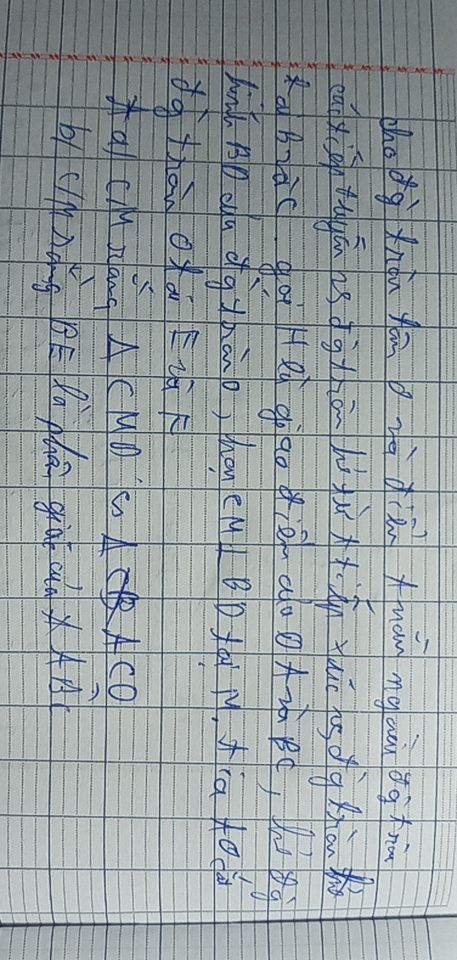 cho đg tròn tâm O và điểm A nằm ngoài đg tròn
các tiếp tuyến vs đg tròn kẻ từ A tiếp xúc vs đg tròn
tại B và C. gọi H là giao điểm của OA và BC, kẻ đg
kính BD của đg tròn O, hạ CM ⊥ BD tại M, tia AO cắt
đg tròn O tại E và F
a/ CM rằng Δ CMD ∽ Δ ACO
b/ C/M rằng BE là phân giác của ABC